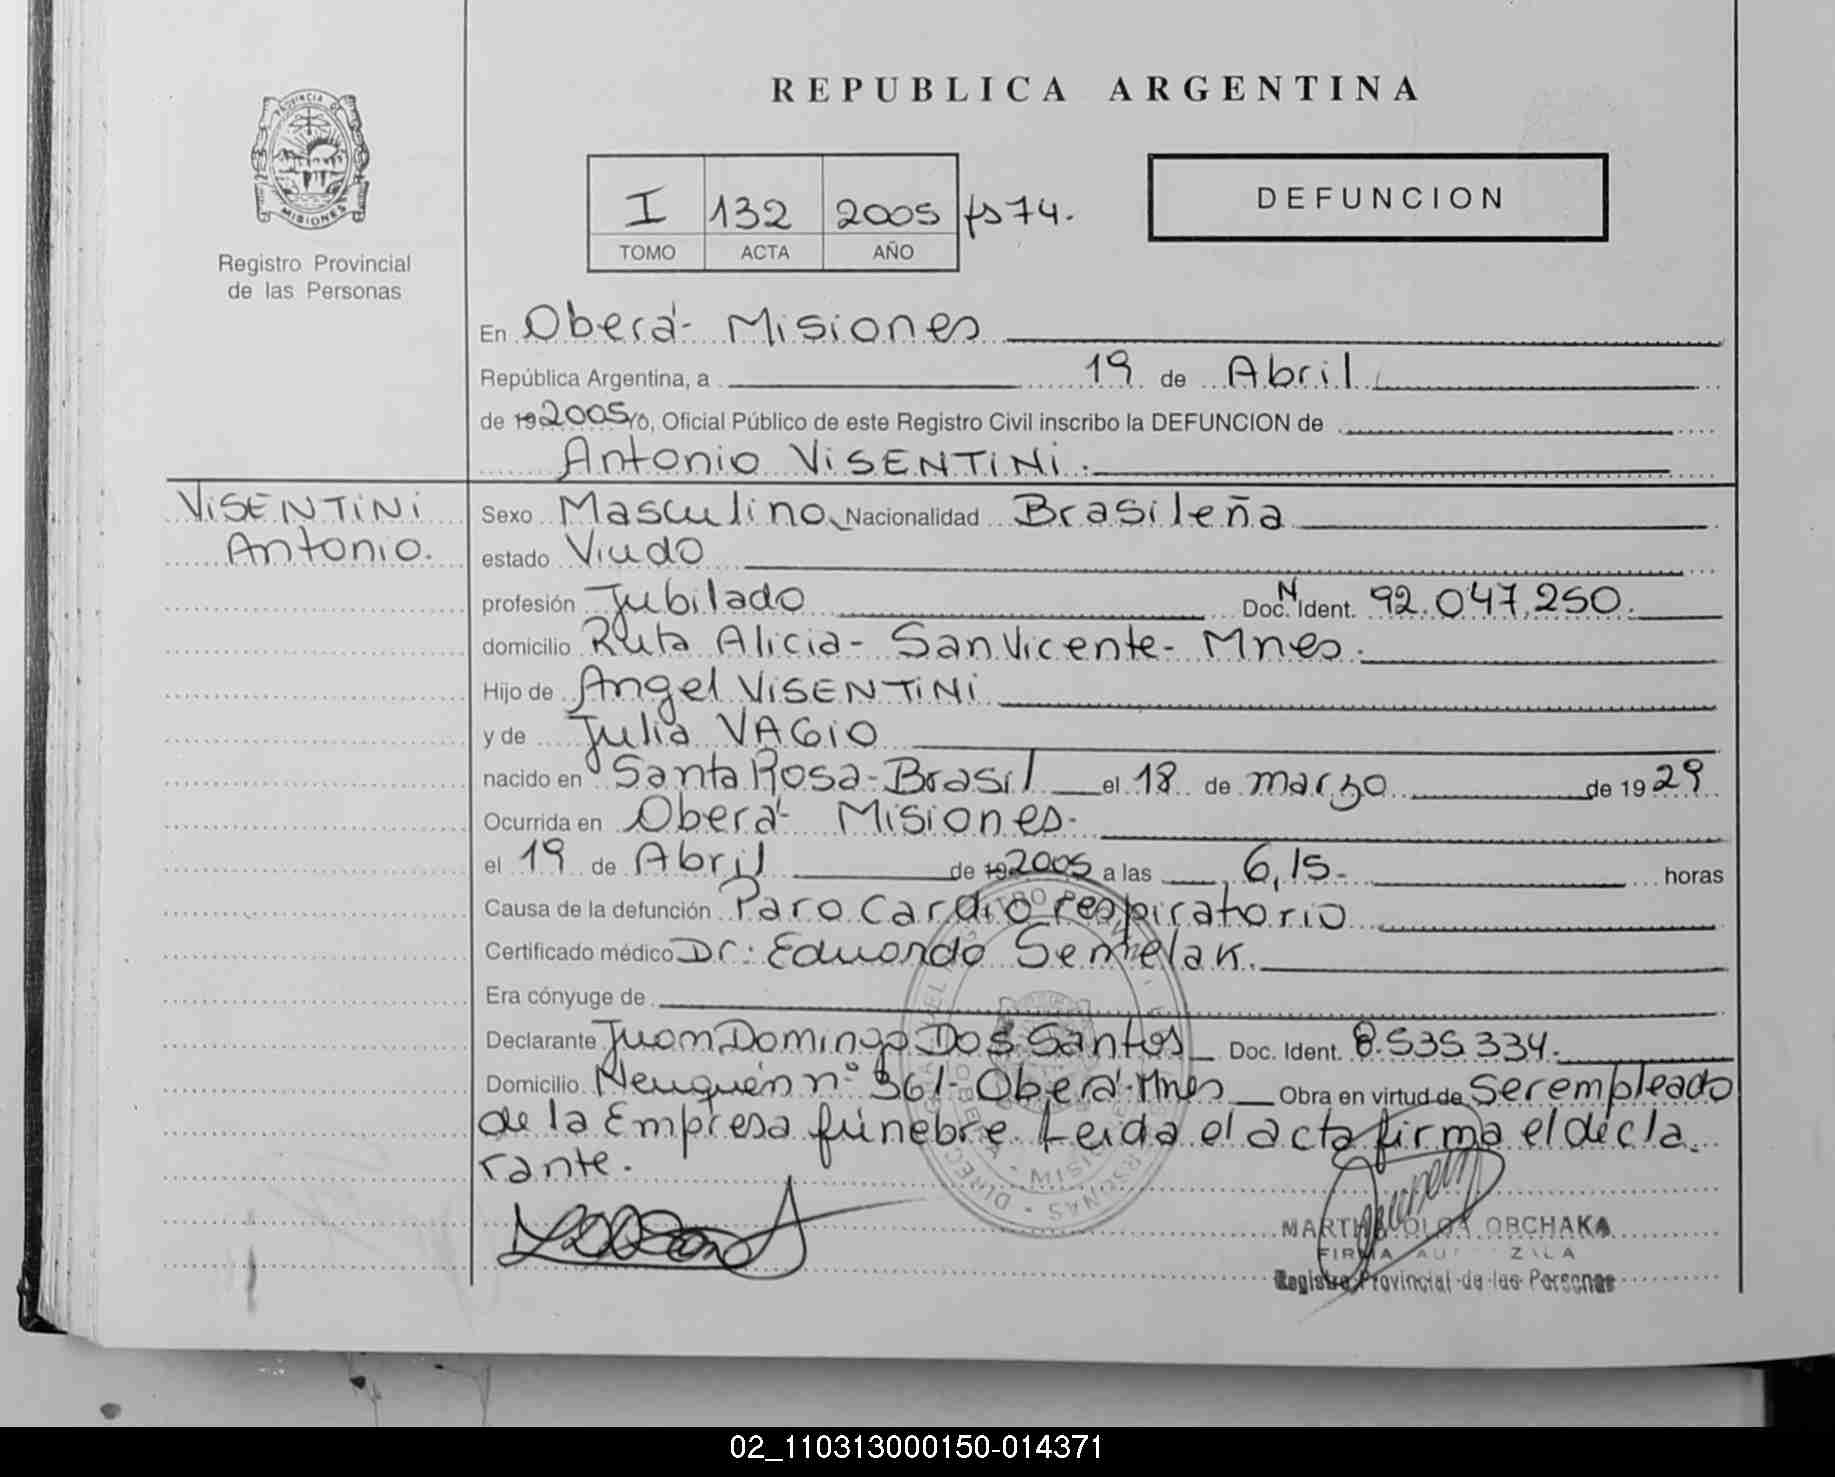 REPUBLICA ARGENTINA
PROVINCIA DE
MISIONES
Registro Provincial
de las Personas
I 132 2005 fs 74.
TOMO ACTA AÑO
DEFUNCION
En Oberá- Misiones
República Argentina, a 19 de Abril
de 19 2005 Yo, Oficial Público de este Registro Civil inscribo la DEFUNCION de
Antonio ViSENTiNi.
ViSENTiNi
Antonio.
Sexo Masculino Nacionalidad Brasileña
estado Viudo
profesión Jubilado Doc. N Ident. 92.047.250.
domicilio Ruta Alicia- San Vicente- Mnes.
Hijo de Angel ViSENTiNi
y de Julia VAGiO
nacido en Santa Rosa-Brasil el 18 de marzo de 1929
Ocurrida en Oberá- Misiones-
el 19 de Abril de 19 2005 a las 6,15- horas
Causa de la defunción Paro Cardio respiratorio
Certificado médico Dr: Eduardo Semelak.
Era cónyuge de
Declarante Juan Domingo Dos Santos Doc. Ident. 8.535.334.
Domicilio Neuquén n° 361- Oberá-Mnes Obra en virtud de Ser empleado
de la Empresa fúnebre. Leida el acta firma el decla
rante.
MARTHA OLGA OBCHAKA
FIRMA
Registro Provincial de las Personas
02_110313000150-014371